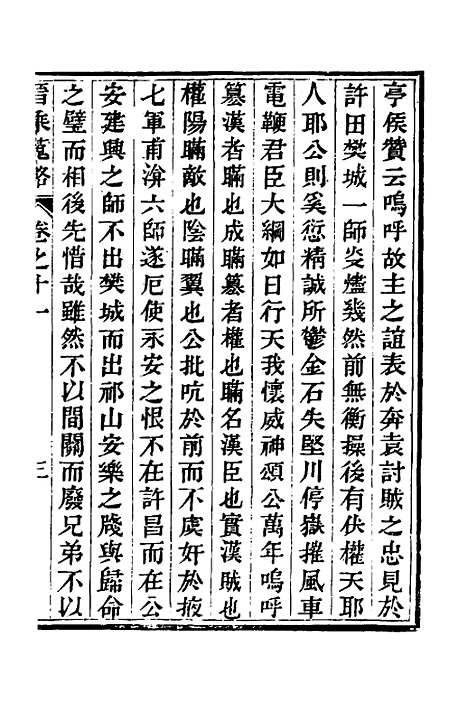 亭侯贊云嗚呼故主之誼表於奔袁討賊之忠見於
許田樊城一師炎燼幾然前無衡操後有伏權天耶
人耶公則奚愆精誠所鬱金石失堅川停嶽摧風車
電鞭君臣大綱如日行天我懷威神頌公萬年嗚呼
篡漢者瞞也成瞞篡者權也瞞名漢臣也實漢賊也
權陽瞞敵也陰瞞翼也公批吭於前而不虞奸於掖
七軍甫渰六師遂厄使永安之恨不在許昌而在公
安建興之師不出樊城而出祁山安樂之牋與歸命
之璧而相後先惜哉雖然不以間關而廢兄弟不以
晉乘蒐略 卷之十一 三